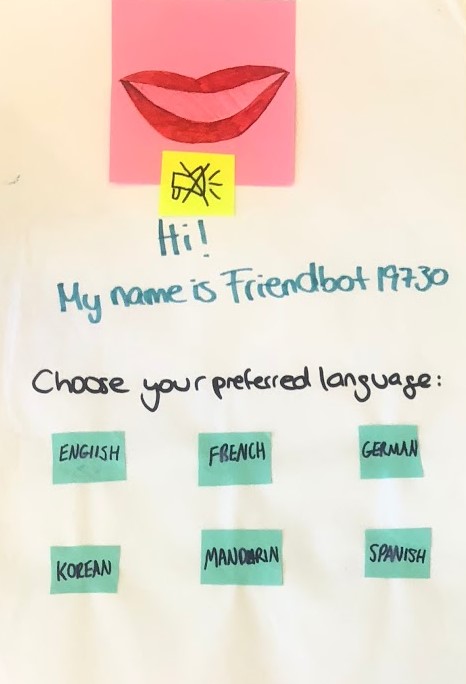 Hi!
My name is Friendbot 19730
Choose your preferred language:
ENGLISH FRENCH GERMAN
KOREAN MANDARIN SPANISH